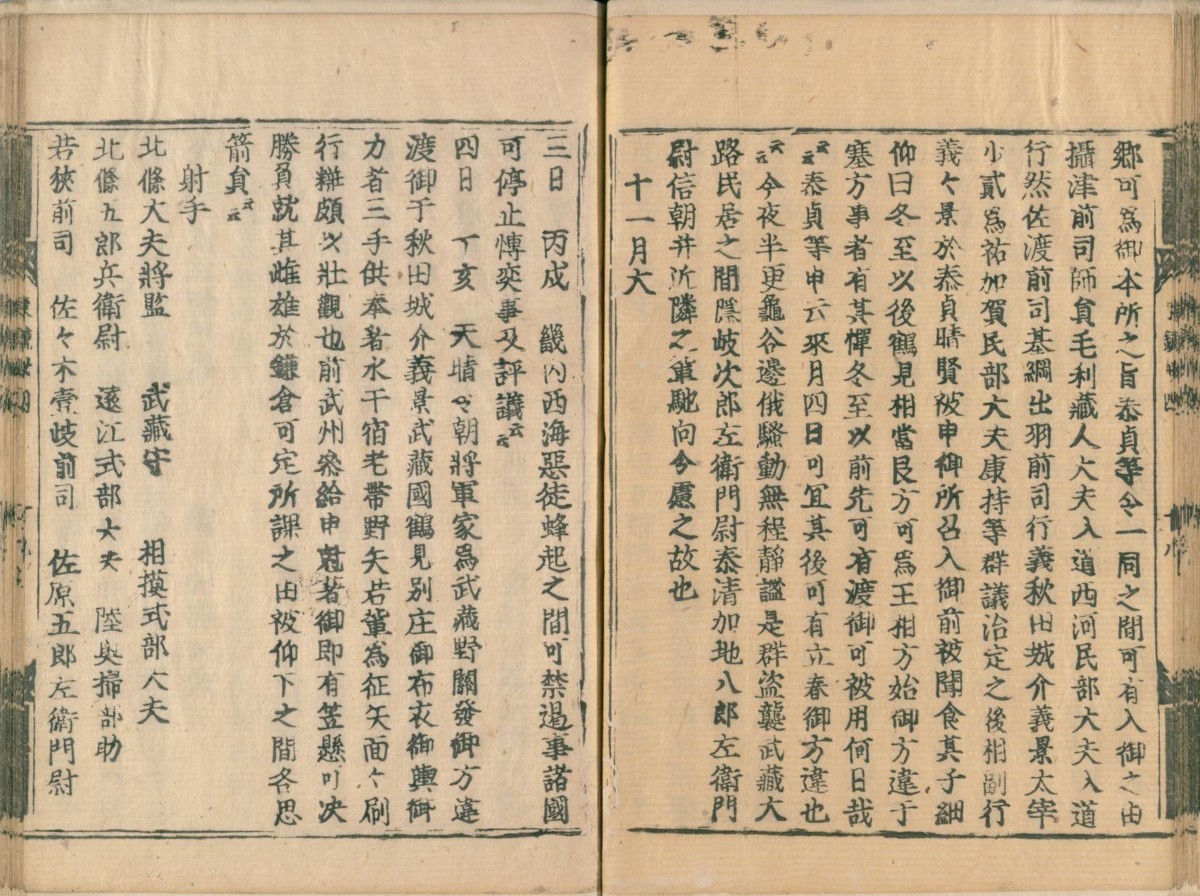 郷可為御本所之旨泰貞等令一同之間可有入御之由
攝津前司師員毛利藏人大夫入道西河民部大夫入道
行然佐渡前司基綱出羽前司行義秋田城介義景太宰
少貳為祐加賀民部大夫康持等群議治定之後相副行
義々景於泰貞晴賢被申御所召入御前被聞食其子細
仰曰冬至以後鶴見相當艮方可為王相方始御方違于
塞方事者有其憚冬至以前先可有渡御可被用何日哉
云云泰貞等申云來月四日可宜其後可有立春御方違也
云云今夜半更龜谷邊俄騷動無程靜謐是群盗襲武藏大
路民居之間隱岐次郎左衛門尉泰清加地八郎左衛門
尉信朝并近隣之輩馳向令慮之故也
十一月大
三日 丙戌 畿内西海惡徒蜂起之間可禁遏事諸國
可停止慱奕事及評議云云
四日 丁亥 天晴今朝將軍家為武藏野開發御方違
渡御于秋田城介義景武藏國鶴見別庄御布衣御輿御
力者三手供奉者水干宿老帶野矢若輩為征矢面々刷
行粧頗以壯觀也前武州參給申尅著御即有笠懸可决
勝負就其雌雄於鎌倉可定所課之由被仰下之間各思
箭負云云
射手
北條大夫將監 武藏守 相摸式部大夫
北條五郎兵衛尉 遠江式部大夫 陸奥掃部助
若狹前司 佐々木壹岐前司 佐原五郎左衛門尉